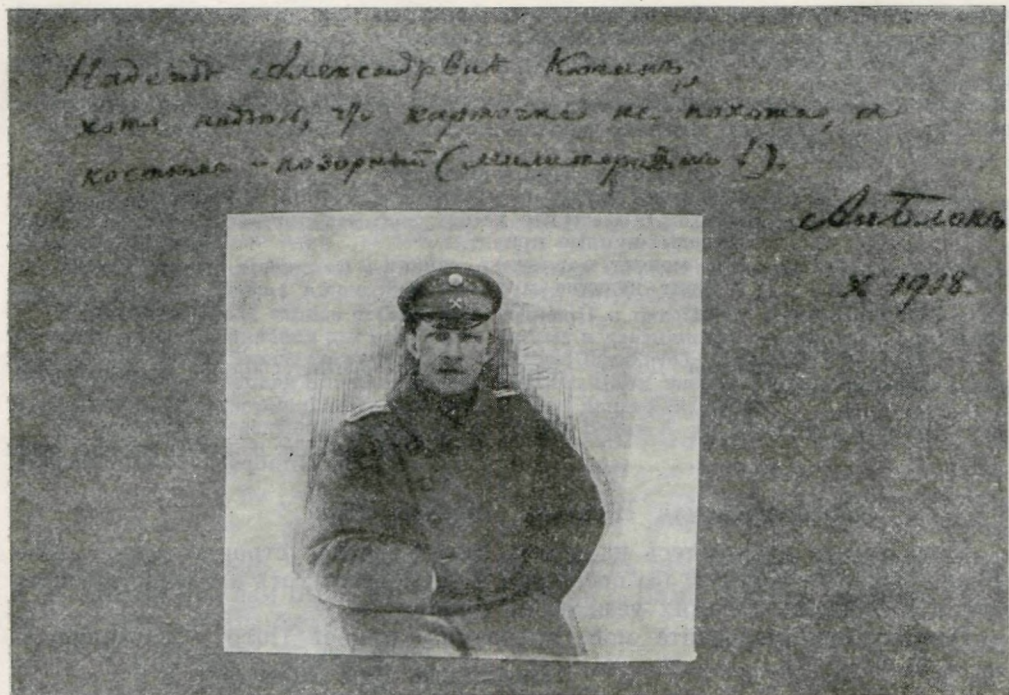 Надеждѣ Александровнѣ Коганъ,
хотя что карточка не похожа, а
костюмъ – позорный (милитаризмъ!).
Ал. Блокъ
X 1918.